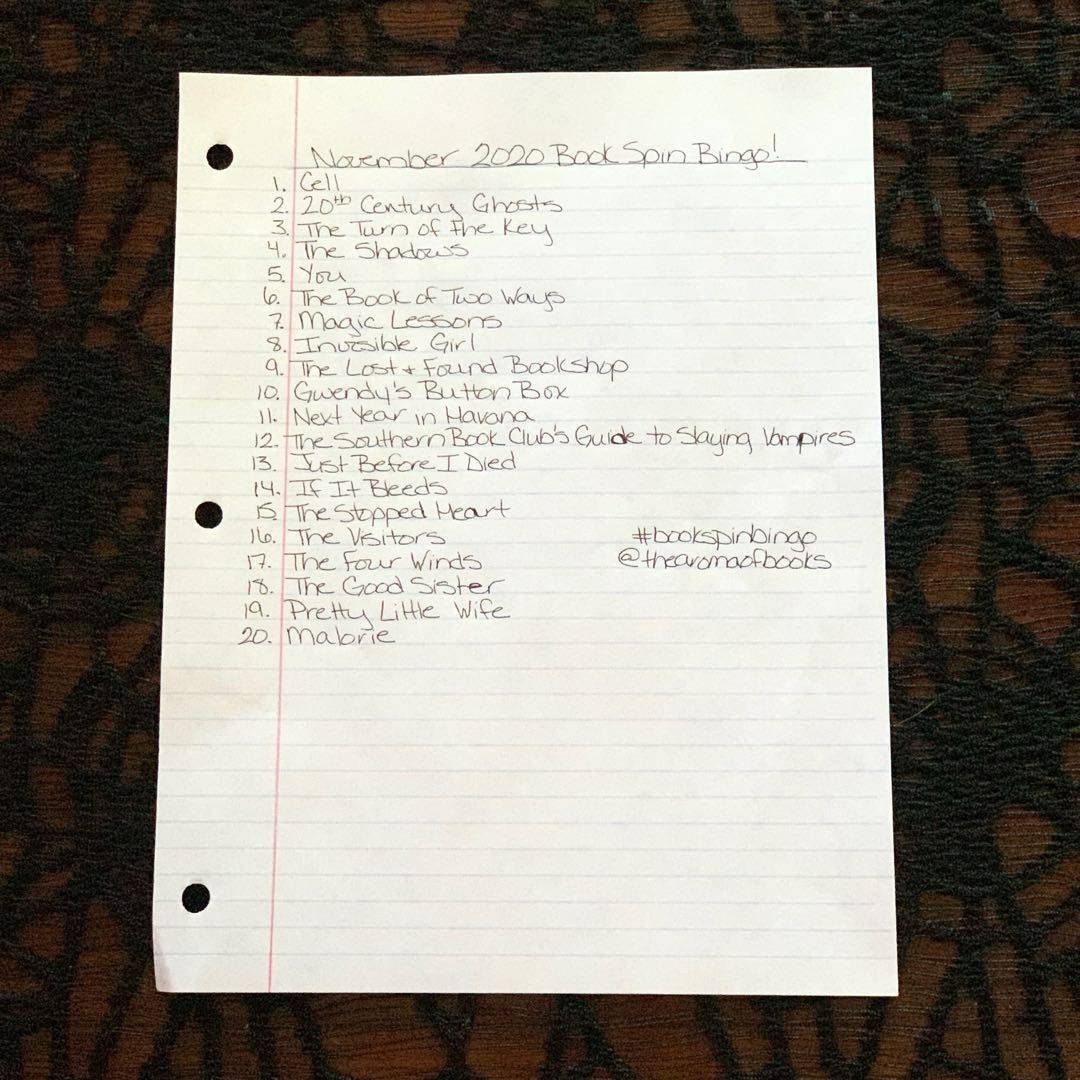 November 2020 Book Spin Bingo!
1. Cell
2. 20th Century Ghosts
3. The Turn of the Key
4. The Shadows
5. You
6. The Book of Two Ways
7. Magic Lessons
8. Invisible Girl
9. The Lost + Found Bookshop
10. Gwendy's Button Box
11. Next Year in Havana
12. The Southern Book Club's Guide to Slaying Vampires
13. Just Before I Died
14. If It Bleeds
15. The Stopped Heart
16. The Visitors #bookspinbingo
17. The Four Winds @thearomaofbooks
18. The Good Sister
19. Pretty Little Wife
20. Malorie